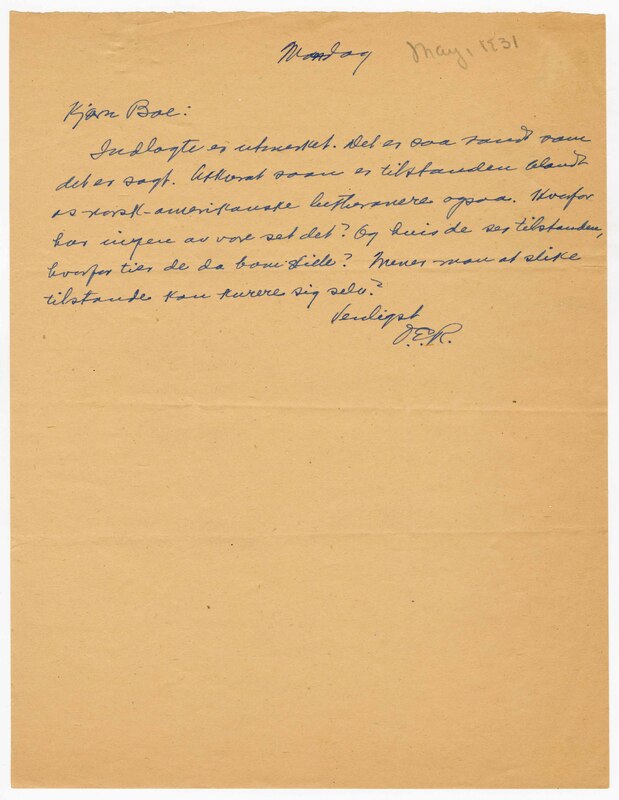 Mandag May, 1931
Kjære Boe:
Indlagte er utmerket. Det er saa sandt som
det er sagt. Akkurat saan er tilstanden blandt
os norsk-amerikanske lutheranere ogsaa. Hvorfor
har ingen av vore set det? Og hvis de ser tilstanden,
hvorfor tier de da bom stille? Mener man at slike
tilstande kan kurere sig selv?
Venligst
O.E.R.